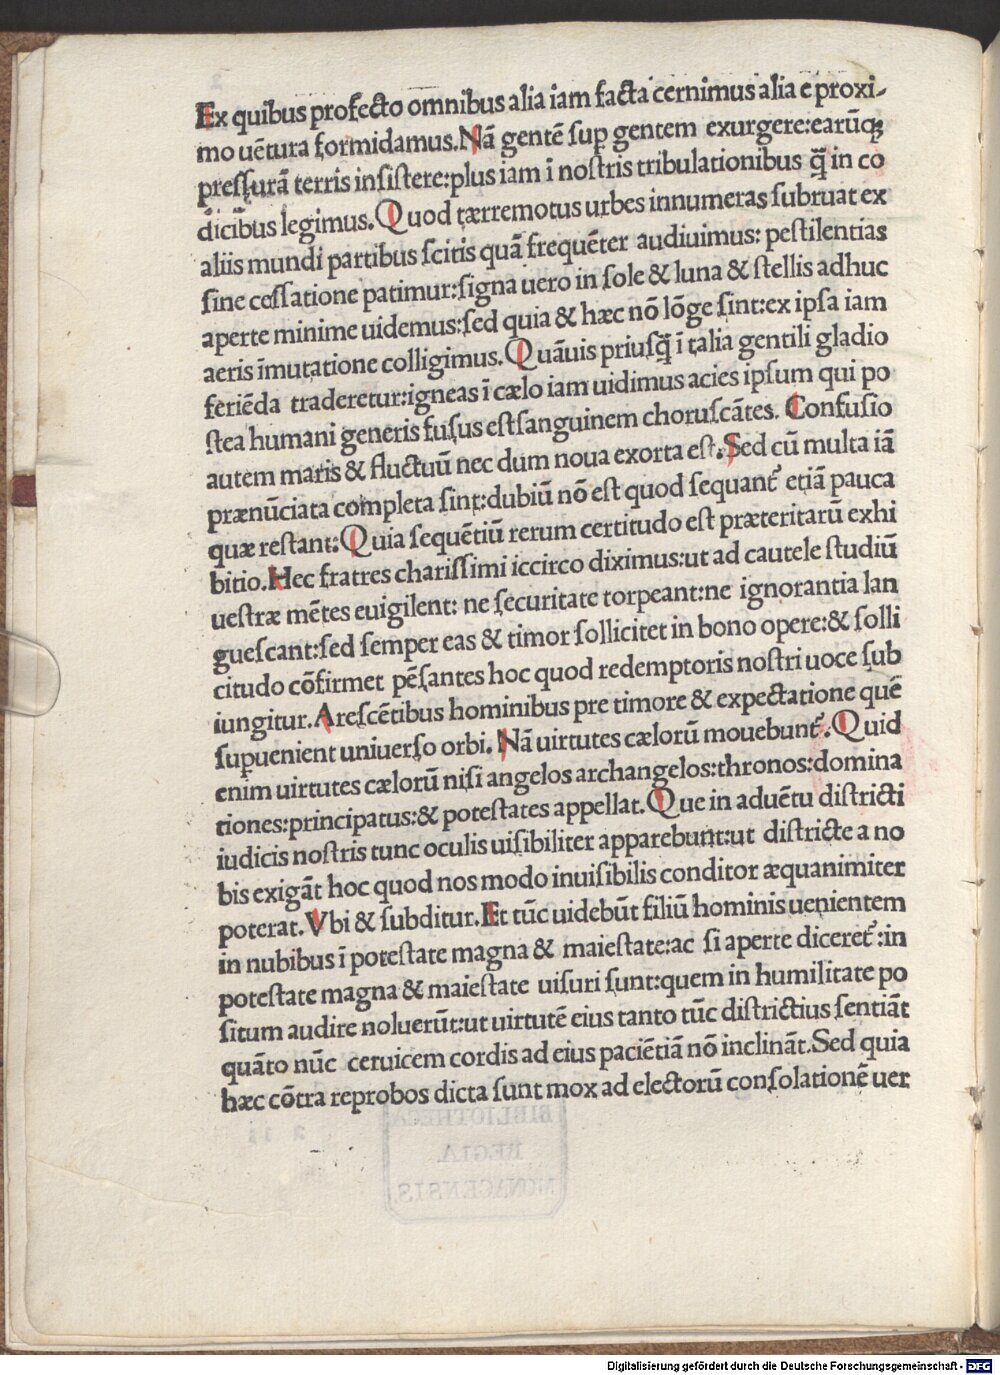 Ex quibus profecto omnibus alia iam facta cernimus alia e proxi-
mo uētura formidamus. Nā gentē sup gentem exurgere: earūq;
pressurā terris insistere: plus iam ī nostris tribulationibus q̄ in co
dicibus legimus. Quod tærremotus urbes innumeras subruat ex
aliis mundi partibus scitis quā frequēter audiuimus: pestilentias
sine cessatione patimur: signa uero in sole & luna & stellis adhuc
aperte minime uidemus: sed quia & hæc nō lōge sint: ex ipsa iam
aeris īmutatione colligimus. Quāuis priusq̄ ī talia gentili gladio
feriēda traderetur: igneas ī cælo iam uidimus acies ipsum qui po
stea humani generis fusus est sanguinem choruscātes. Confusio
autem maris & fluctuū nec dum noua exorta est. Sed cū multa iā
prænūciata completa sint: dubiū nō est quod sequant᷑ etiā pauca
quæ restant: Quia sequētiū rerum certitudo est præteritarū exhi
bitio. Hec fratres charissimi iccirco diximus: ut ad cautele studiū
uestræ mētes euigilent: ne securitate torpeant: ne ignorantia lan
guescant: sed semper eas & timor sollicitet in bono opere: & solli
citudo cōfirmet pēsantes hoc quod redemptoris nostri uoce sub
iungitur. Arescētibus hominibus pre timore & expectatione quē
supuenient uniuerso orbi. Nā uirtutes cælorū mouebunt᷑. Quid
enim uirtutes cælorū nisi angelos archangelos: thronos: domina
tiones: principatus: & potestates appellat. Que in aduētu districti
iudicis nostris tunc oculis uisibiliter apparebunt: ut districte a no
bis exigāt hoc quod nos modo inuisibilis conditor æquanimiter
poterat. Vbi & subditur. Et tūc uidebūt filiū hominis uenientem
in nubibus ī potestate magna & maiestate: ac si aperte diceret᷑: in
potestate magna & maiestate uisuri sunt: quem in humilitate po
situm audire noluerūt: ut uirtutē eius tanto tūc districtius sentiāt
quāto nūc ceruicem cordis ad eius paciētiā nō inclināt. Sed quia
hæc cōtra reprobos dicta sunt mox ad electorū consolationē uer
BIBLIOTHECA
REGIA
MONACENSIS.
Digitalisierung gefördert durch die Deutsche Forschungsgemeinschaft - DFG